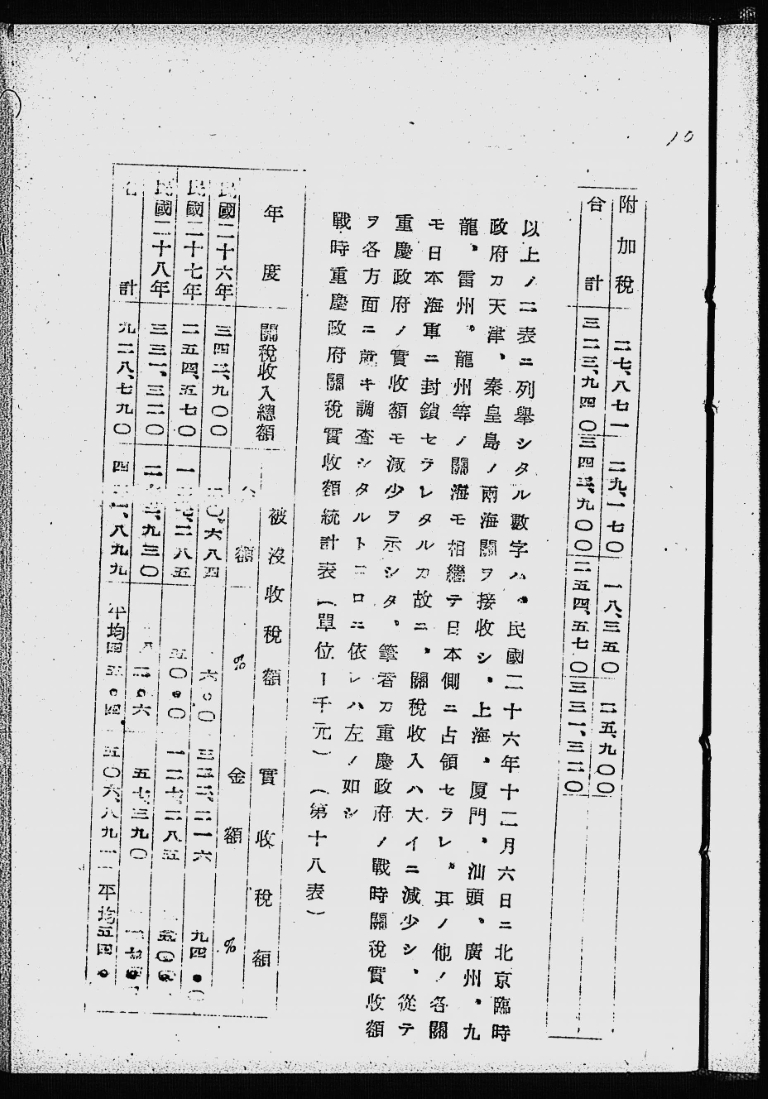 10
附加税 二七、八七一 二九、一七〇 一八、三五〇 二五、九〇〇
合計 三二三、九四〇 三四二、九〇〇 二五四、五七〇 三三一、三二〇
以上ノ二表ニ列擧シタル數字ハ、民國二十六年十二月六日ニ北京臨時
政府カ天津、秦皇島ノ兩海關ヲ接收シ、上海、厦門、汕頭、廣州、九
龍、雷州、龍州等ノ關海モ相繼テ日本側ニ占領セラレ、其ノ他ノ各關
モ日本海軍ニ封鎖セラレタルカ故ニ、關稅收入ハ大イニ減少シ、從テ
重慶政府ノ實收額モ減少ヲ示シタ。筆者カ重慶政府ノ戰時關稅實收額
ヲ各方面ニ就キ調査シタルトコロニ依レハ左ノ如シ
戰時重慶政府關稅實收額統計表(單位ー千元)(第十八表)
年度 關稅收入總額 被沒收稅額 實收稅額
額 % 金額 %
民國二十六年 三四二、九〇〇 六八四 六.〇 三二二、二一六 九四.〇
民國二十七年 二五四、五七〇 二八五 五〇.〇 一二七、二八五
民國二十八年 三三一、三二〇 九三〇 二.六 五七、三九〇
計 九二八、七九〇 八九九 平均四五.四 五〇六、八九一 平均五四.